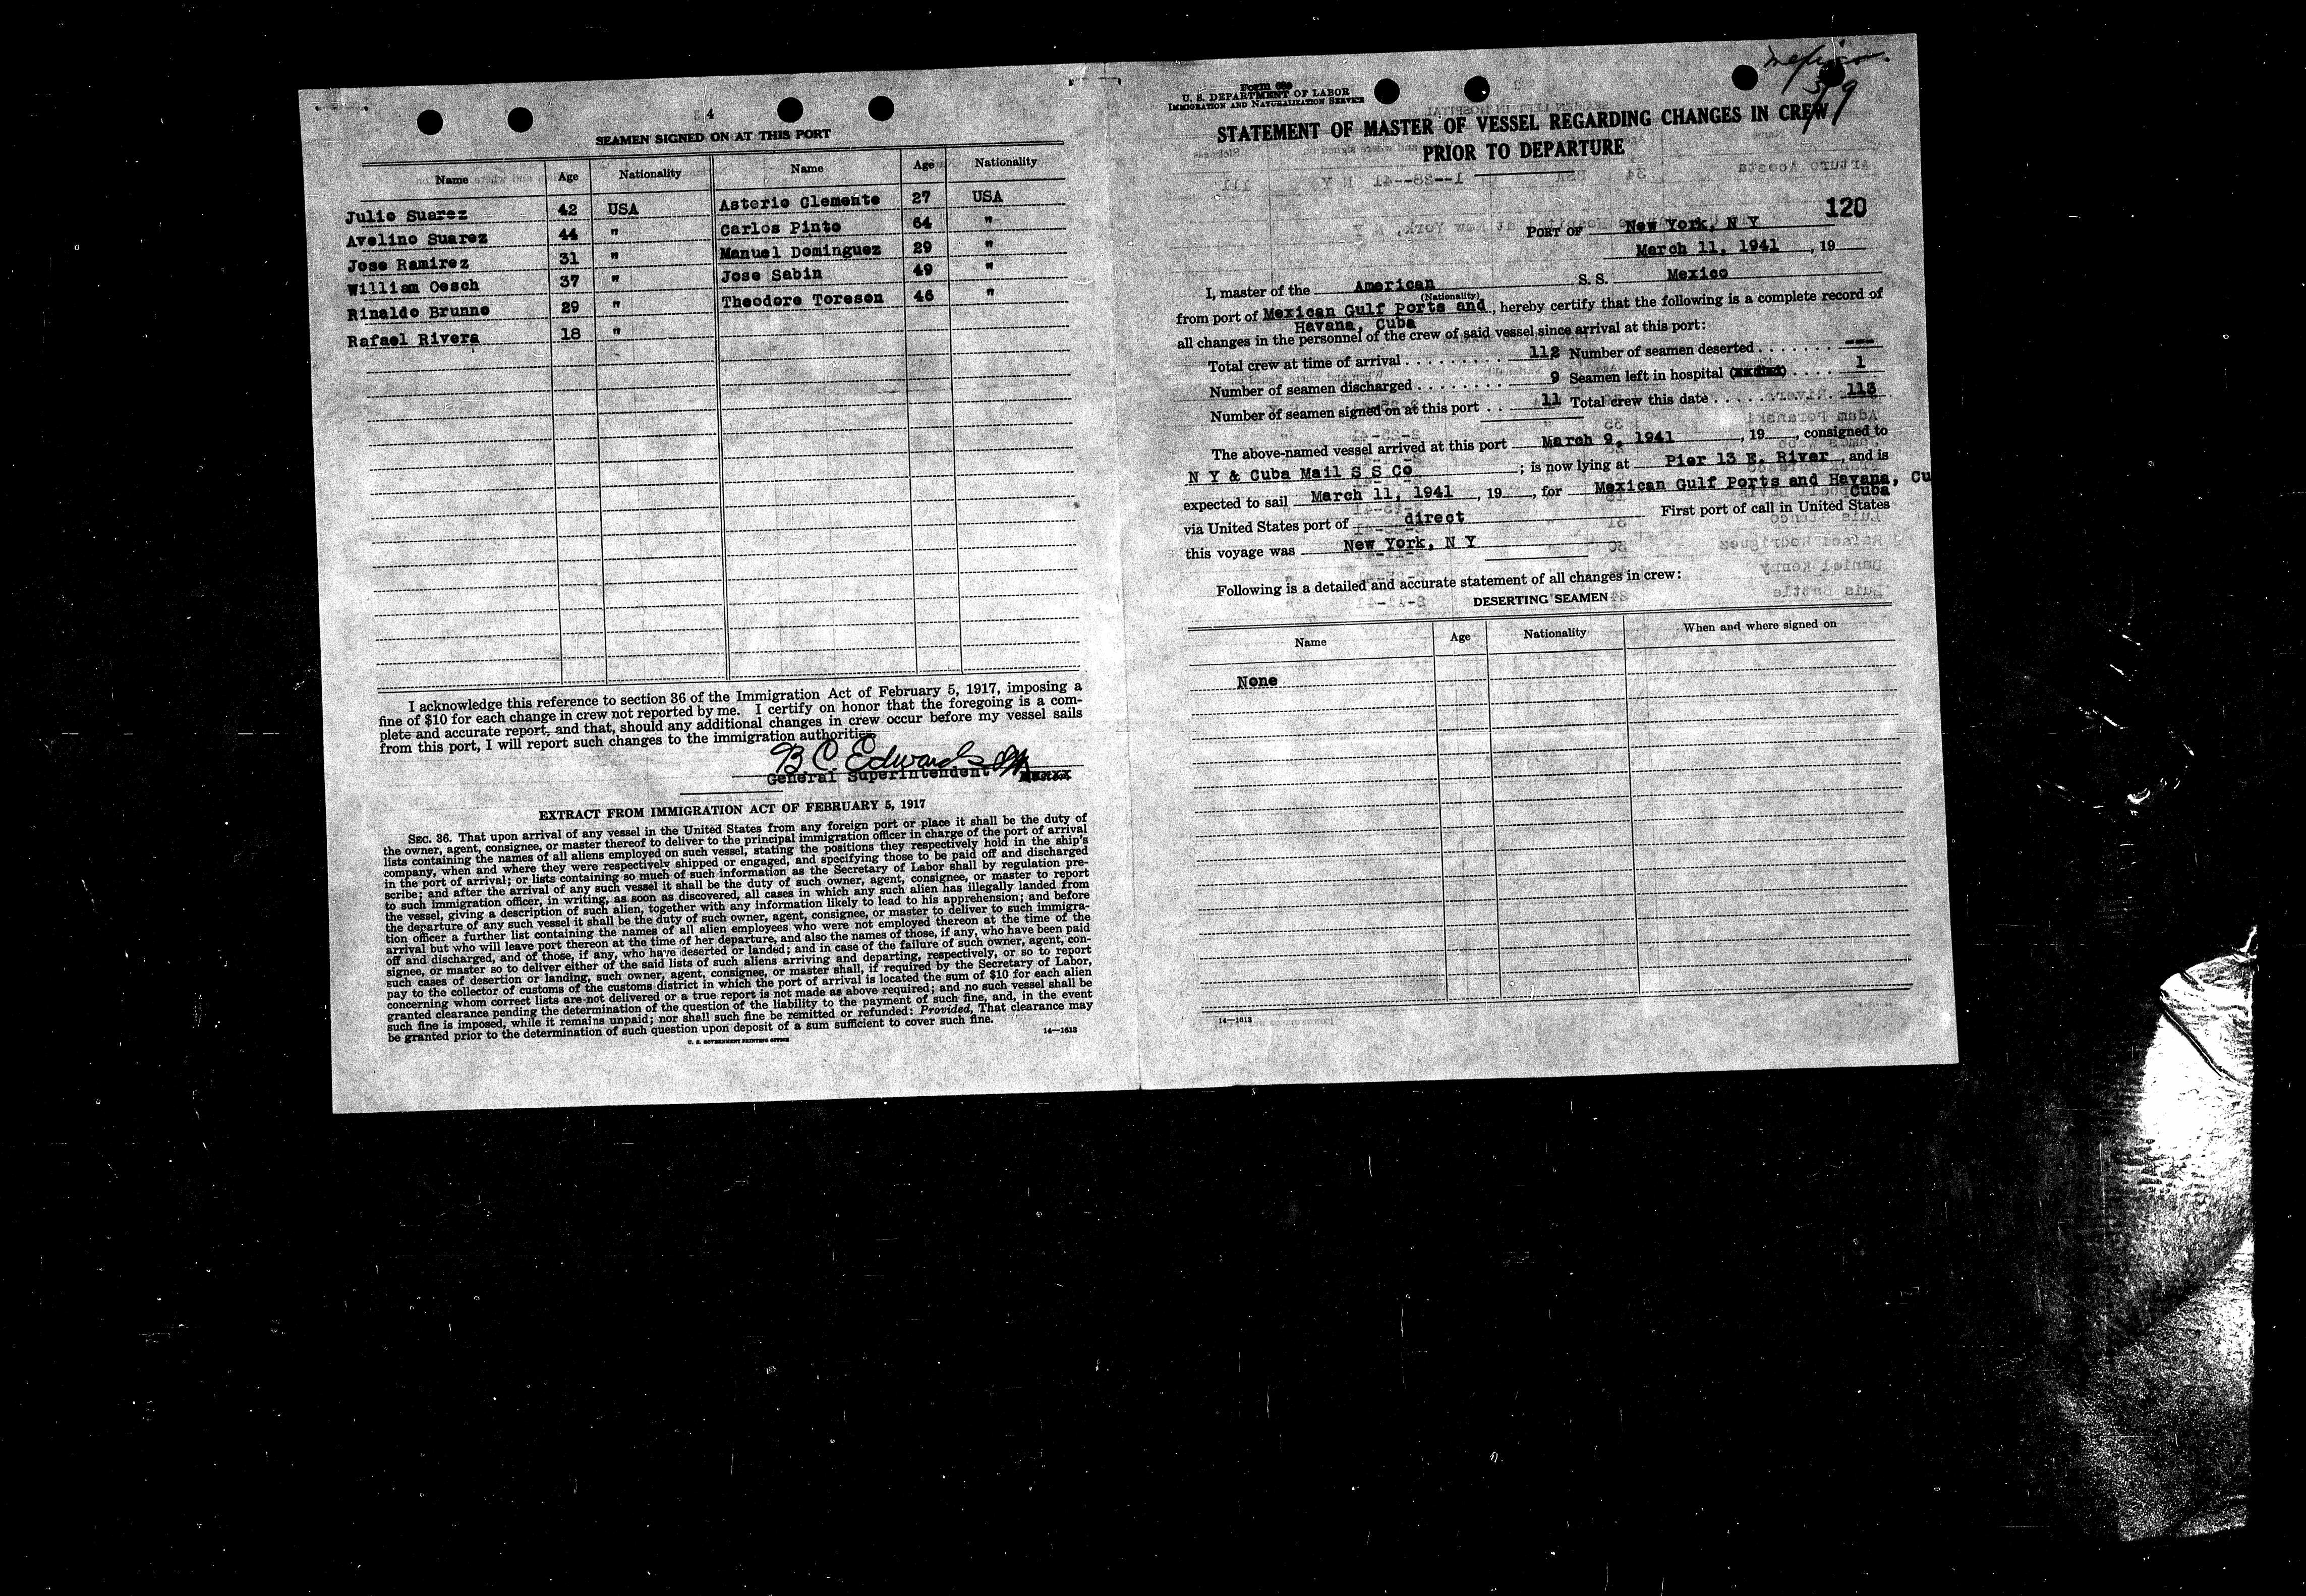 4
SEAMEN SIGNED ON AT THIS PORT
Name Age Nationality Name Age Nationality
Julio Suarez 42 USA Asterio Clemente 27 USA
Avelino Suarez 44 " Carlos Pinto 64 "
Jose Ramirez 31 " Manuel Dominguez 29 "
William Oesch 37 " Jose Sabin 49 "
Rinaldo Brunno 29 " Theodore Toresen 46 "
Rafael Rivera 18 "
I acknowledge this reference to section 36 of the Immigration Act of February 5, 1917, imposing a
fine of $10 for each change in crew not reported by me. I certify on honor that the foregoing is a com-
plete and accurate report, and that, should any additional changes in crew occur before my vessel sails
from this port, I will report such changes to the immigration authorities.
B C Edwards
General Superintendent
EXTRACT FROM IMMIGRATION ACT OF FEBRUARY 5, 1917
SEC. 36. That upon arrival of any vessel in the United States from any foreign port or place it shall be the duty of
the owner, agent, consignee, or master thereof to deliver to the principal immigration officer in charge of the port of arrival
lists containing the names of all aliens employed on such vessel, stating the positions they respectively hold in the ship's
company, when and where they were respectively shipped or engaged, and specifying those to be paid off and discharged
in the port of arrival; or lists containing so much of such information as the Secretary of Labor shall by regulation pre-
scribe; and after the arrival of any such vessel it shall be the duty of such owner, agent, consignee, or master to report
to such immigration officer, in writing, as soon as discovered, all cases in which any such alien has illegally landed from
the vessel, giving a description of such alien, together with any information likely to lead to his apprehension; and before
the departure of any such vessel it shall be the duty of such owner, agent, consignee, or master to deliver to such immigra-
tion officer a further list containing the names of all alien employees who were not employed thereon at the time of the
arrival but who will leave port thereon at the time of her departure, and also the names of those, if any, who have been paid
off and discharged, and of those, if any, who have deserted or landed; and in case of the failure of such owner, agent, con-
signee, or master so to deliver either of the said lists of such aliens arriving and departing, respectively, or so to report
such cases of desertion or landing, such owner, agent, consignee, or master shall, if required by the Secretary of Labor,
pay to the collector of customs of the customs district in which the port of arrival is located the sum of $10 for each alien
concerning whom correct lists are not delivered or a true report is not made as above required; and no such vessel shall be
granted clearance pending the determination of the question of the liability to the payment of such fine, and, in the event
such fine is imposed, while it remains unpaid; nor shall such fine be remitted or refunded: Provided, That clearance may
be granted prior to the determination of such question upon deposit of a sum sufficient to cover such fine.
U. S. GOVERNMENT PRINTING OFFICE 14—1613
Mexico.
3/9
Form 680
U. S. DEPARTMENT OF LABOR
IMMIGRATION AND NATURALIZATION SERVICE
STATEMENT OF MASTER OF VESSEL REGARDING CHANGES IN CREW
PRIOR TO DEPARTURE
120
PORT OF New York, N Y
March 11, 1941, 19
I, master of the American S. S. Mexico
(Nationality)
from port of Mexican Gulf Ports and, hereby certify that the following is a complete record of
Havana, Cuba
all changes in the personnel of the crew of said vessel since arrival at this port:
Total crew at time of arrival 112 Number of seamen deserted ---
Number of seamen discharged 9 Seamen left in hospital 1
Number of seamen signed on at this port 11 Total crew this date 113
The above-named vessel arrived at this port March 9, 1941, 19, consigned to
N Y & Cuba Mail S S Co; is now lying at Pier 13 E. River, and is
expected to sail March 11, 1941, 19, for Mexican Gulf Ports and Havana, Cu
Cuba
via United States port of direct First port of call in United States
this voyage was New York, N Y
Following is a detailed and accurate statement of all changes in crew:
DESERTING SEAMEN
Name Age Nationality When and where signed on
None
14—1613